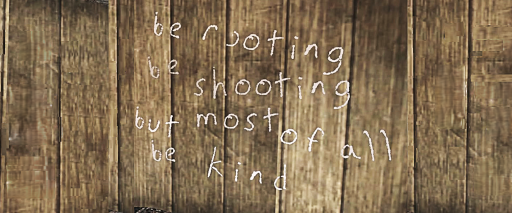 be rooting
be shooting
but most of all
be kind